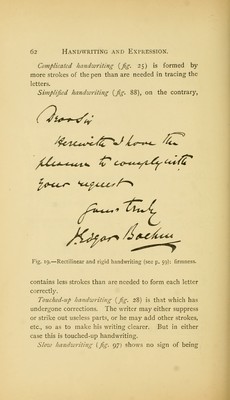 62 HANDWRITING AND EXPRESSION.
Complicated handwriting (fig. 25) is formed by
more strokes of the pen than are needed in tracing the
letters.
Simplified handwriting (fig. 88), on the contrary,
Dear Sir
Herewith I have the
pleasure to comply with
your request
Yours truly
J Edgar Boehm
Fig. 19.—Rectilinear and rigid handwriting (see p. 59): firmness.
contains less strokes than are needed to form each letter
correctly.
Touched-up handwriting (fig. 28) is that which has
undergone corrections. The writer may either suppress
or strike out useless parts, or he may add other strokes,
etc., so as to make his writing clearer. But in either
case this is touched-up handwriting.
Slow handwriting (fig. 97) shows no sign of being